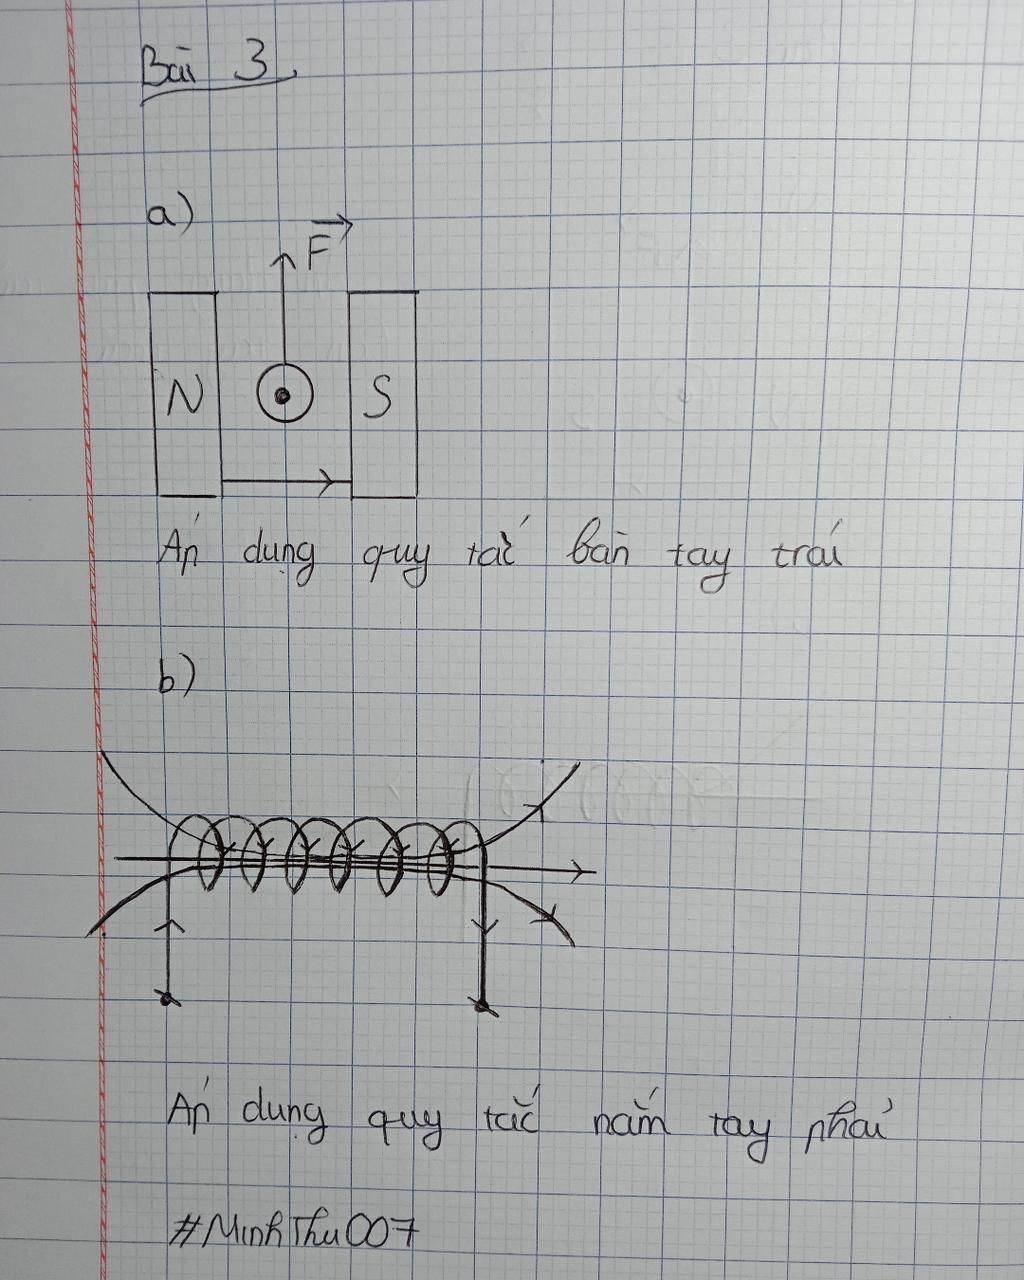 Bài 3
a)
F
N S
Áp dụng quy tắc bàn tay trái
b)
Áp dụng quy tắc nắm tay phải
#MinhThu007